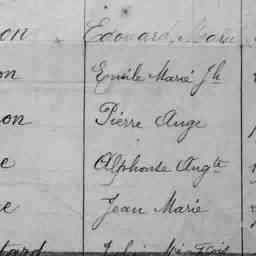 on Edouard Marie
on Emile Marie Jh
on Pierre Ange
e Alphonse Augte
e Jean Marie
tard